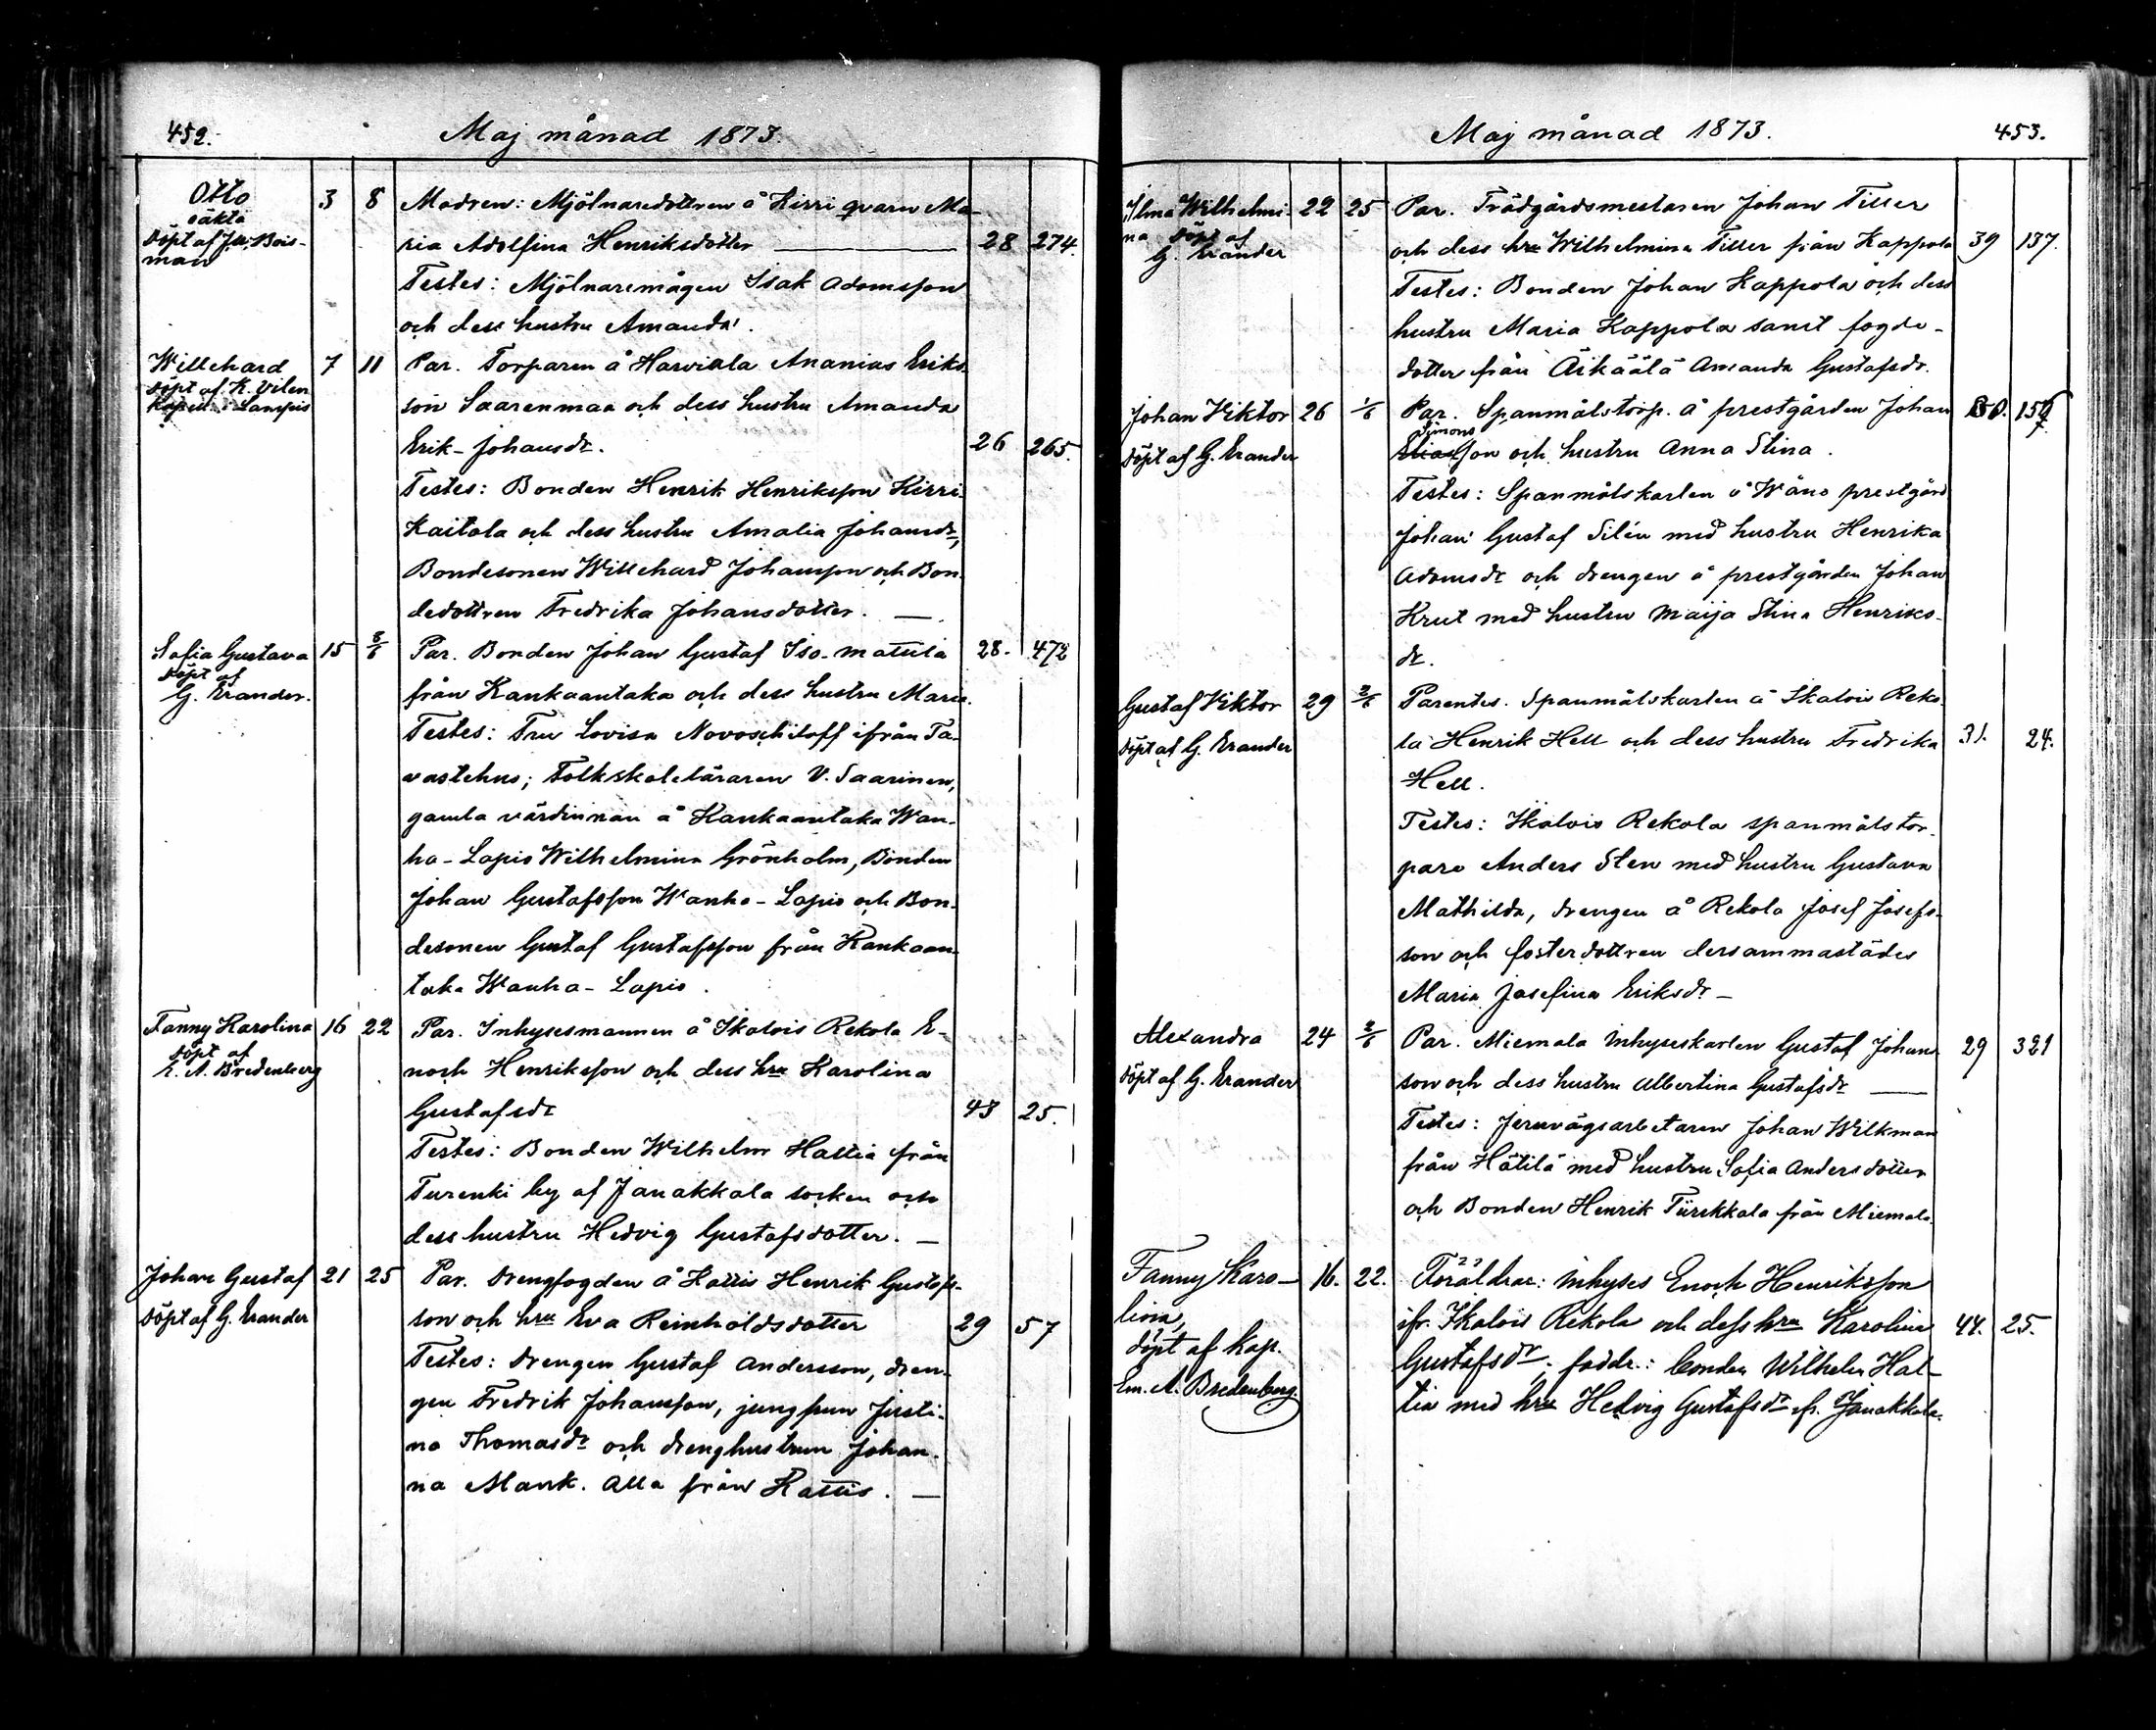 452.
Maj månad 1873.
Otto 3 8 Modren: Mjölnaredottren å Kirri qvarn Ma-
oäkta
döpt af Ju. Bois-
man
ria Adolfina Henriksdotter 28 274.
Testes: Mjölnaremågen Isak Adamsson
och dess hustru Amanda.
Willehard 7 11 Par. Torparen å Harviala Ananias Eriks
döpt af K. Vilen
son Saarenmaa och dess hustru Amanda
Erik-Johansdr. 26 265.
Testes: Bonden Henrik Henriksson Kirri
Kaitala och dess hustru Amalia Johansdr,
Bondesonen Willehard Johansson och Bon-
dedottren Fredrika Johansdotter.
Sofia Gustava 15 8/6 Par. Bonden Johan Gustaf Iso-Mattila 28. 472
döpt af
G. Erander.
från Kankaantaka och dess hustru Maria.
Testes: Fru Lovisa Novoschiloff ifrån Ta-
vastehus; Folkskoleläraren V. Saarinen,
gamla värdinnan å Kankaantaka Wan-
ha-Lapio Wilhelmina Grönholm, Bonden
Johan Gustafsson Wanha-Lapio och Bon-
desonen Gustaf Gustafsson från Kankaan-
taka Wanha-Lapio.
Fanny Karolina 16 22 Par. Inhysesmannen å Ikalois Rekola E-
döpt af
E. A. Bredenberg
noch Henriksson och dess hru Karolina
Gustafsdr 43 25.
Testes: Bonden Wilhelm Hattia från
Turenki by af Janakkala socken och
dess hustru Hedvig Gustafsdotter.
Johan Gustaf 21 25 Par. Drengfogden å Kattis Henrik Gustafs-
döpt af G. Erander
son och hru Eva Reinholdsdotter 29 57
Testes: Drengen Gustaf Andersson, dren-
gen Fredrik Johansson, jungfrun Justi-
na Thomasdr och drenghustrun Johan-
na Mank. Alla från Kattis.
Maj månad 1873.
453.
Ilma Wilhelmi- 22 25 Par. Trädgårdsmestaren Johan Tiller
na döpt af
G. Erander
och dess hru Wilhelmina Tiller från Kappola 39 137.
Testes: Bonden Johan Kappola och dess
hustru Maria Kappola samt fogde-
dotter från Äikäälä Amanda Gustafsdr.
Johan Viktor 26 1/6 Par. Spanmålstorp. å prestgården Johan
Simons
döpt af G. Erander
son och hustru Anna Stina.
Testes: Spanmålskarlen å Wånå prestgård
Johan Gustaf Silén med hustru Henrika
Adamsdr och drengen å prestgården Johan
Krut med hustru Maija Stina Henriks-
dr.
Gustaf Viktor 29 2/6 Parentes. Spanmålskarlen å Ikalois Reko-
döpt af G. Erander
la Henrik Hell och dess hustru Fredrika 31. 24.
Hell.
Testes: Ikalois Rekola spanmålstor-
pare Anders Sten med hustru Gustava
Mathilda, drengen å Rekola Josef Josefs-
son och fosterdottren dersammastädes
Maria Josefina Eriksdr
Alexandra 24 2/6 Par. Miemala Inhyseskarlen Gustaf Johans 29 321
döpt af G. Erander
son och dess hustru Albertina Gustafsdr
Testes: Jernvägsarbetaren Johan Wilkman
från Hätilä med hustru Sofia Andersdotter
och Bonden Henrik Tiirikkala från Miemala.
Fanny Karo- 16. 22. Föräldrar: Inhyses Enoch Henriksson
lina,
ifr. Ikalois Rekola och dess hru Karolina 44. 25.
döpt af kap.
Gustafsdr; faddr.: bonden Wilhelm Hat-
Em. A. Bredenberg.
tia med hru Hedvig Gustafsdr ifr. Janakkala.